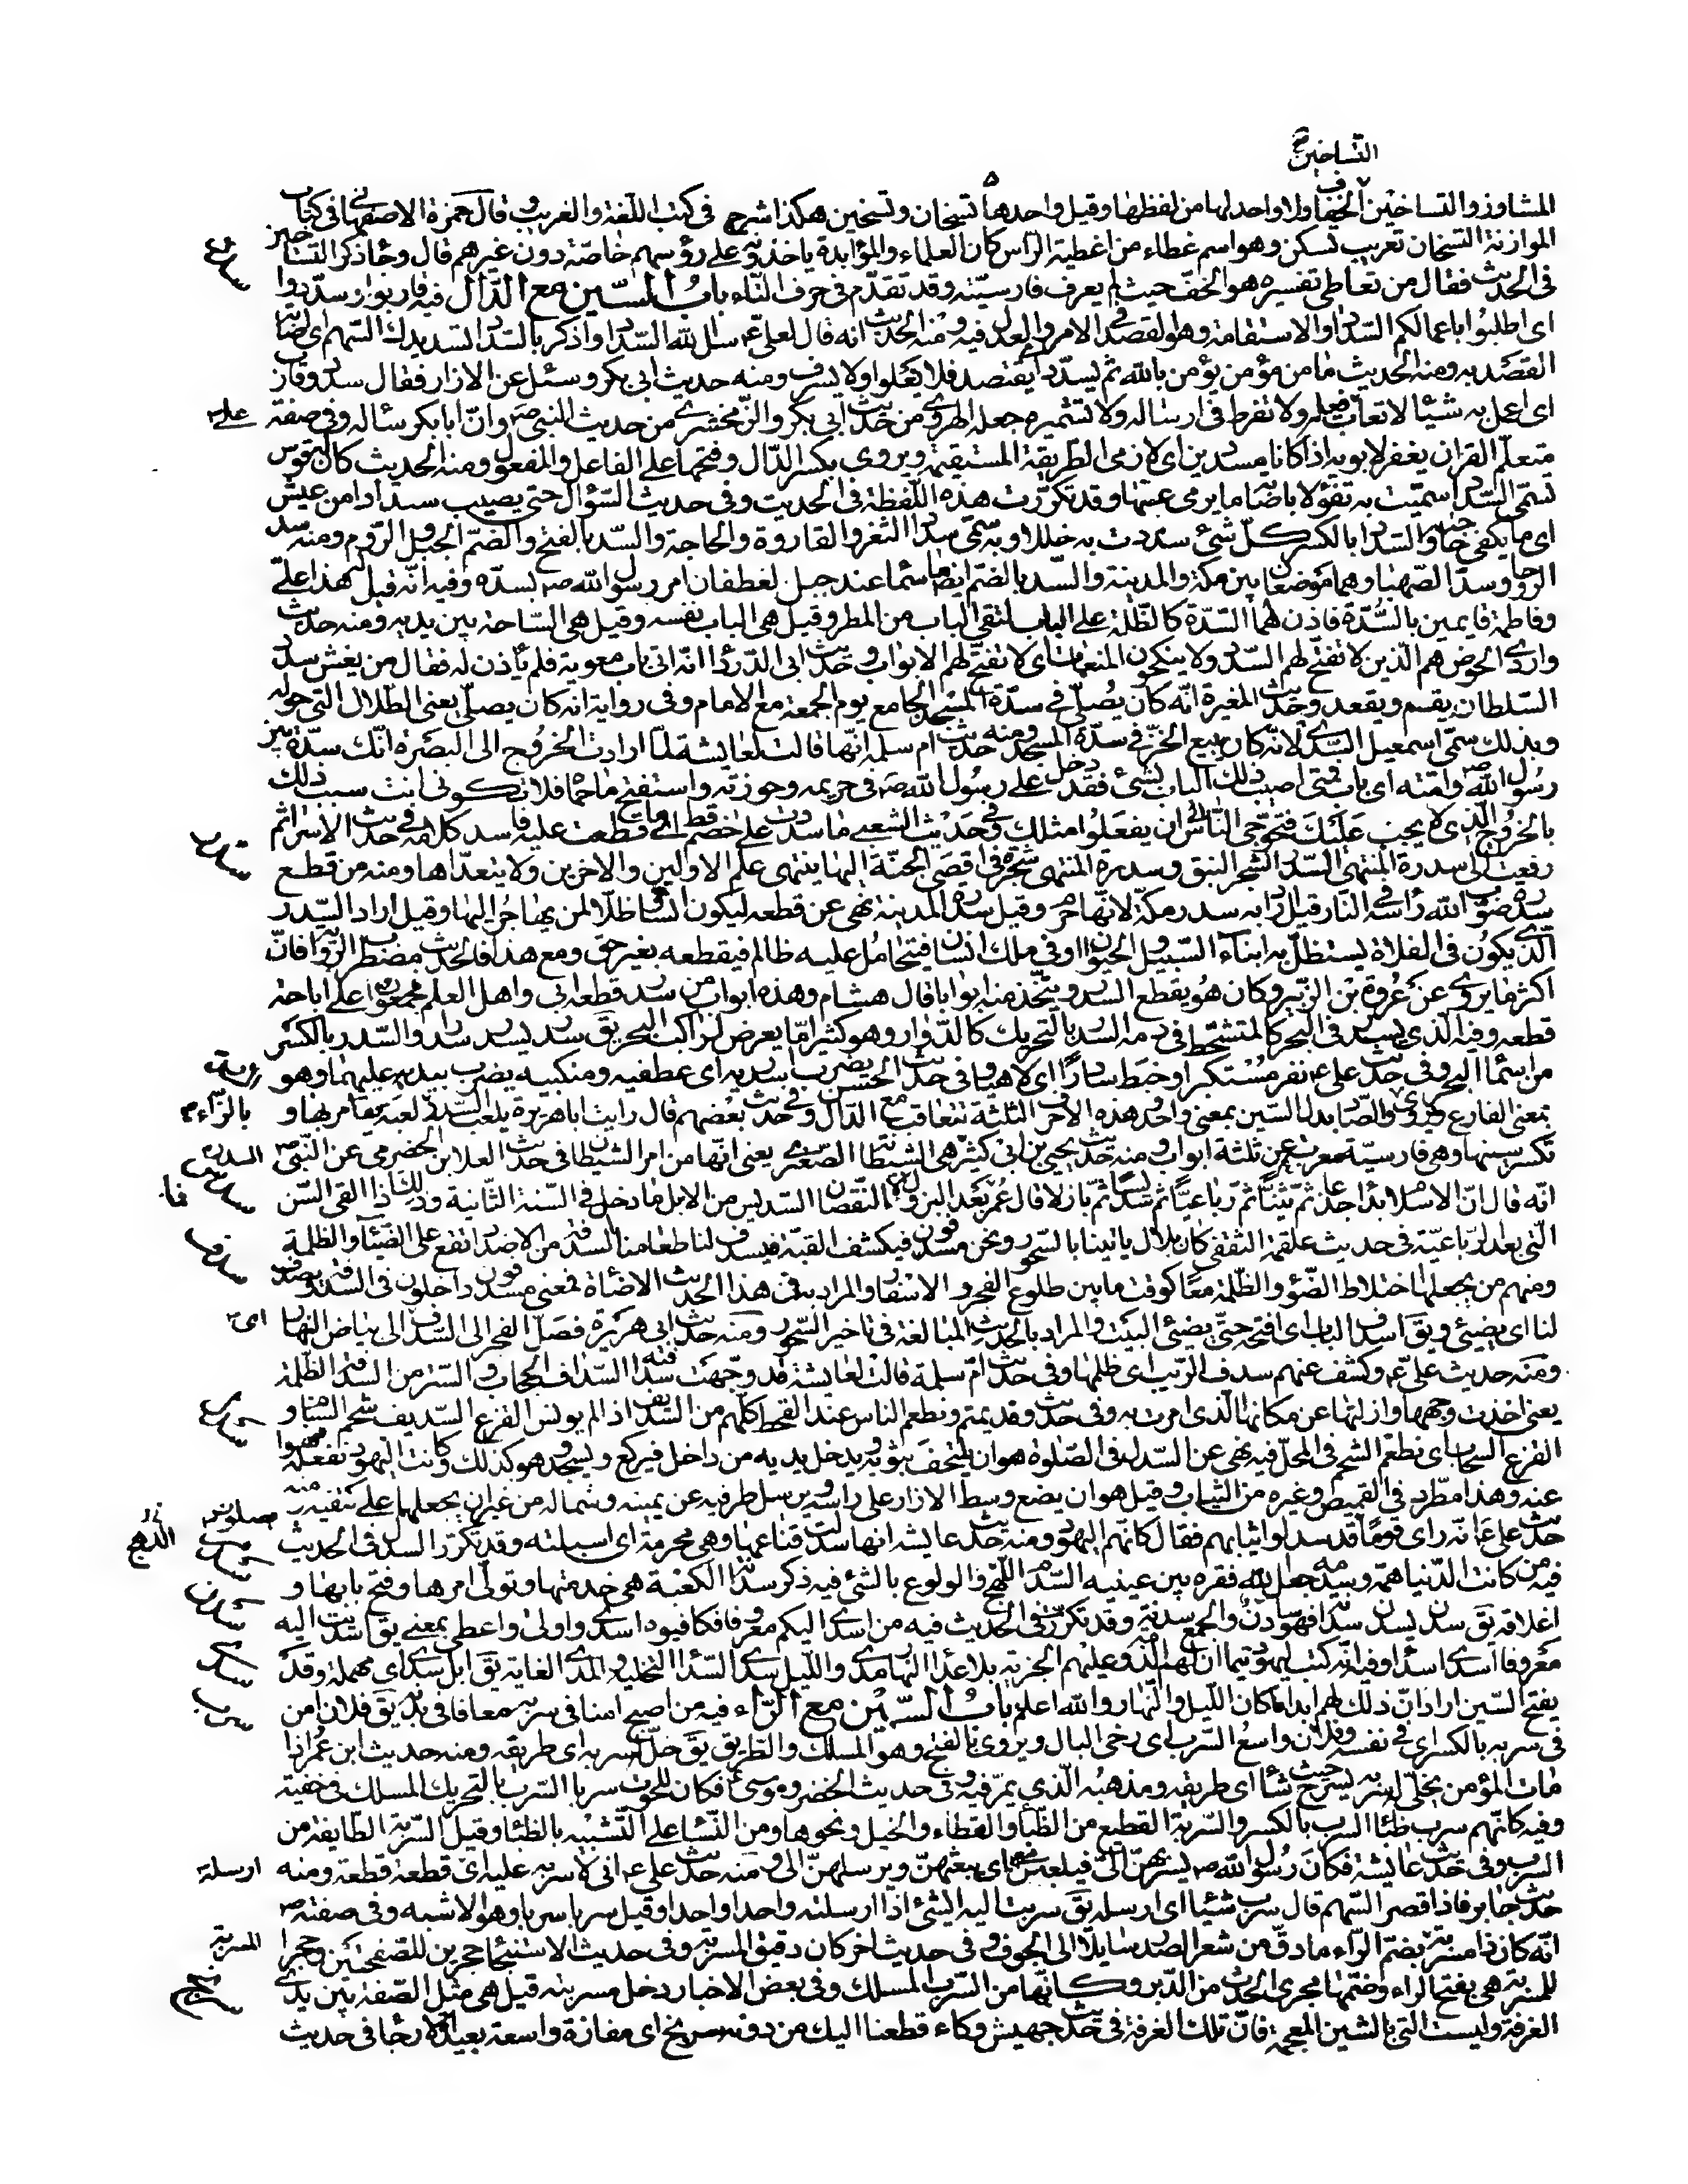 التساخين
المشاوذ والتساخين الخفاف ولا واحد لها من لفظها وقيل واحدها تسخان وتسخين هكذا شرح فى كتب اللغة والغريب وقال حمزة الاصفهانى فى كتاب
الموازنة التسخان تعريب تشكن وهو اسم غطاء من اغطية الراس كان العلماء والمؤابدة ياخذونه على رؤسهم خاصة دون غيرهم قال وجاء ذكر التساخين
فى الحديث فقال من تعاطى تفسيره هو الخف حيث لم يعرف فارسيته وقد تقدم فى حرف التاء باب السين مع الدال فيه قاربوا وسددوا
اى اطلبوا باعمالكم السداد والاستقامة وهو القصد فى الامر والعدل فيه ومنه الحديث انه قال لعلى سل الله السداد واذكر بالسداد تسديدك السهم اى اصابة
القصد به ومنه الحديث ما من مؤمن يؤمن بالله ثم يسدد اى يقتصد فلا يغلوا ولا يسرف ومنه حديث ابى بكر وسئل عن الازار فقال سدد وقارب
اى اعمل به شيئا لا تعاب على فعله ولا تفرط فى ارساله ولا تشميره جعله الهروى من حديث ابى بكر والزمخشرى من حديث النبى ص وان ابا بكر سئاله وفى صفة
متعلم القران يغفر لابويه اذا كانا مسددين اى لازمى الطريقة المستقيمة ويروى بكسر الدال وفتحها على الفاعل والمفعول ومنه الحديث كان له قوس
تسمى السداد سميت به تفؤلا باصابة ما يرمى عنها وقد تكررت هذه اللفظة فى الحديث وفى حديث السؤال حتى يصيب سدادا من عيش
اى ما يكفى حاجته والسداد بالكسر كل شئ سددت به خللا وبه سمى سداد الثغر والقارورة والحاجة والسد بالفتح والضم الجبل والردم ومنه سد
الروحا وسد الصهبا وهما موضعان بين مكة والمدينة والسد بالضم ايضا ماء سماء عند جبل لغطفان امر رسول الله ص بسده وفيه انه قيل له هذا على
وفاطمة قايمين بالسدة فاذن لهما السدة كالظلة على الباب لتقى الباب من المطر وقيل هى الباب نفسه وقيل هى الساحة بين يديه ومنه حديث
واردى الحوض هم الذين لا تفتح لهم السدد ولا ينكحون المنعمات اى لا تفتح لهم الابواب وحديث ابى الدرداء انه اتى باب معوية فلم يأذن له فقال من يغش سدد
السلطان يقم ويقعد وحديث المغيرة انه كان يصلى فى سدة المسجد الجامع يوم الجمعة مع الامام وفى رواية انه كان يصلى يعنى الظلال التى حوله
وبذلك سمى اسمعيل السدى لانه كان يبيع الخمر فى سدة المسجد ومنه حديث ام سلمة انها قالت لعايشة لما ارادت الخروج الى البصرة انك سدة بين
رسول الله ص وامته اى باب فمتى اصيب ذلك الباب بشئ فقد دخل على رسول الله ص فى حريمه وحوزته واستفتح ما حماه فلا تكونى انت سبب ذلك
بالخروج الذى لا يجب عليك فتحوجى الناس الى ان يفعلوا مثلك وفى حديث الشعبى ما سددت على خصم قط اى ما قطعت عليه فاسد كلامه فى حديث الاسراء ثم
رفعت الى سدرة المنتهى السدر شجر النبق وسدرة المنتهى شجرة فى اقصى الجنة اليها ينتهى علم الاولين والاخرين ولا يتعداها ومنه من قطع
سدرة صوب الله راسه فى النار قيل اراد به سدر مكة لانها حرم وقيل سدر المدينة نهى عن قطعه ليكون انسا وظلا لمن يهاجر اليها وقيل اراد السدر
الذى يكون فى الفلاة يستظل به ابناء السبيل والحيوان او فى ملك انسان فيتحامل عليه ظالم فيقطعه بغير حق ومع هذا فالحديث مضطرب الرواية فان
اكثر ما يروى عن عروة بن الزبير وكان هو يقطع السدر ويتخذ منه ابوابا قال هشام وهذه ابواب من سدر قطعه ابى واهل العلم مجمعون على اباحة
قطعه وفيه الذى يسدر فى البحر كالمتشحط فى دمه السدر بالتحريك كالدوار وهو كثيرا ما يعرض لراكب البحر يق سدر يسدر سدرا والسدر بالكسر
من اسماء البحر وفى حديث على ع نفر مستكبرا وخبط سادرا اى لاهيا وفى حديث الحسن يضرب اسدريه اى عطفيه ومنكبيه يضرب بيديه عليهما وهو
بمعنى الفارغ ويروى بالزاء والصاد بدل السين بمعنى واحد وهذه الاحرف الثلثة تتعاقب مع الدال وفى حديث بعضهم قال رايت اباهريرة يلعب السدر لعبة يقامر بها و
تكسر سينها وهى فارسية معربة عن ثلثة ابواب ومنه حديث يحيى بن ابى كثير هى الشيطانة الصغرى يعنى انها من امر الشيطان فى حديث العلا بن الحضرمى عن النبى ص
انه قال ان الاسلام بدا جذعا ثم ثنيا ثم رباعيا ثم سديسا ثم بازلا قال عمر فما بعد البزول الا النقصان السديس من الابل ما دخل فى السنة الثانية وذلك اذا القى السن
التى بعد الرباعية فى حديث علقمة الثقفى كان بلال ياتينا بالسحور ونحن مسدفون فيكشف القبة فيسدف لنا طعامنا السدفة من الاضداد تقع على الضياء والظلمة
ومنهم من يجعلها اختلاط الضوء والظلمة معا كوقت ما بين طلوع الفجر والاسفار والمراد به فى هذا الحديث الاضاة فمعنى مسدفون داخلون فى السدفة ويسدف
لنا اى يضيئ ويق اسدف الباب اى افتحه حتى يضيئ البيت والمراد بالحديث المبالغة فى تاخير السحور ومنه حديث ابى هريرة فصل الفجر الى السدف اى الى بياض النهار
ومنه حديث على ع وكشف عنهم سدف الريب اى ظلمها وفى حديث ام سلمة قالت لعايشة قد وجهت سدافته السدافة الحجاب والستر من السدفة الظلمة
يعنى اخذت وجهها وازلتها عن مكانها الذى امرت به وفى حديث وفد تميم ونطعم الناس عند القحط كلهم من السديف اذا لم يونس القزع السديف شحم السنام و
القزع السحاب اى نطعم الشحم فى المحل فيه نهى عن السدل فى الصلوة هو ان يلتحف بثوبه ويدخل يديه من داخل فيركع ويسجد وهو كذلك وكانت اليهود تفعله فنهوا
عنه وهذا مطرد فى القميص وغيره من الثياب وقيل هو ان يضع وسط الازار على راسه ويرسل طرفيه عن يمينه وشماله من غير ان يجعلهما على كتفيه ومنه
حديث على ع انه راى قوما قد سدلوا ثيابهم فقال كانهم اليهود ومنه حديث عايشه انها سدلت قناعها وهى محرمة اى اسبلته وقد تكرر السدل فى الحديث
فيه من كانت الدنيا همه وسدمه جعل الله فقره بين عينيه السدم اللهج والولوع بالشئ فيه ذكر سدانة الكعبة هى خدمتها وتولى امرها وفتح بابها و
اغلاقه يق سدن يسدن سدانة فهو سادن والجمع سدنة وقد تكرر فى الحديث فيه من اسدى اليكم معروفا فكافيوه اسدى واولى واعطى بمعنى يق اسديت اليه
معروفا اسدى اسداء وفيه انه كتب ليهود تيماء ان لهم الذمة وعليهم الجزية بلا عداء النهار مدى والليل سدى السدى التخلية والمدى الغاية يق ابل سدى اى مهملة وقد
يفتح السين اراد ان ذلك لهم ابدا ما كان الليل والنهار والله اعلم باب السين مع الراء فيه من اصبح امنا فى سربه معافا فى بدنه يق فلان امن
فى سربه بالكسر اى فى نفسه وفلان واسع السرب اى رخى البال ويروى بالفتح وهو المسلك والطريق يق خل سربه اى طريقه ومنه حديث ابن عمر اذا
مات المؤمن يخلى له سربه يسرح حيث شاء اى طريقه ومذهبه الذى يمر فيه وفى حديث الخضر وموسى ع فكان للحوت سربا السرب بالتحريك المسلك فى خفية
وفيه كانهم سرب ظباء السرب بالكسر والسربة القطيع من الظباء والقطاء والخيل ونحوها ومن النساء على التشبيه بالظباء وقيل السربة الطايفة من
السرب وفى حديث عايشة فكان رسول الله ص يسربهن الى فيلعبن معى اى يبعثهن ويرسلهن الى ومنه حديث على ع انى لاسربه عليه اى ارسله قطعة قطعة ومنه
حديث جابر فاذا قصر السهم قال سرب شيئا اى ارسله يق سربت اليه الشئ اذا ارسلته واحدا واحدا وقيل سربا سربا وهو الاشبه وفى صفته ص
انه كان ذا مسربة المسربة بضم الراء ما دق من شعر الصدر سايلا الى الجوف وفى حديث اخر كان دقيق المسربة وفى حديث الاستنجاء حجرين للصفحتين وحجرا
للمسربة هى بفتح الراء وضمها مجرى الحدث من الدبر وكانها من السرب المسلك وفى بعض الاخبار دخل مسربته قيل هى مثل الصفة بين يدى
الغرفة وليست التى بالشين المعجمة فان تلك الغرفة فى حديث جهيش وكاء قطعنا اليك من دوية سربخ اى مفازة واسعة بعيدة الارجاء فى حديث